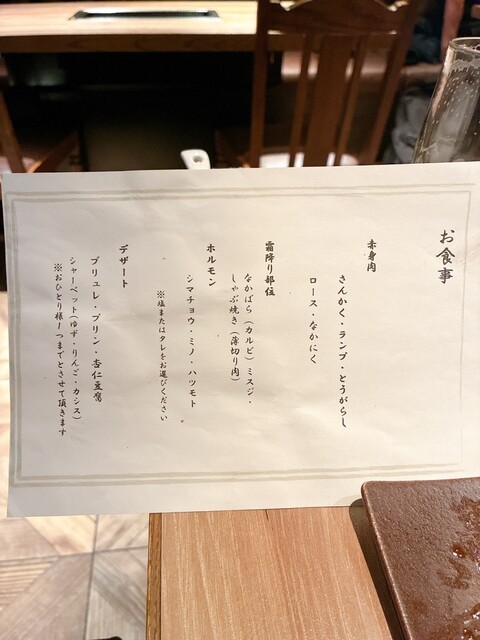 お食事
赤身肉
さんかく・ランプ・とうがらし
ロース・なかにく
霜降り部位
なかばら（カルビ）ミスジ・
しゃぶ焼き（薄切り肉）
ホルモン
シマチョウ・ミノ・ハツモト
※塩またはタレをお選びください
デザート
ブリュレ・プリン・杏仁豆腐
シャーベット（ゆず・りんご・カシス）
※おひとり様一つまでとさせて頂きます